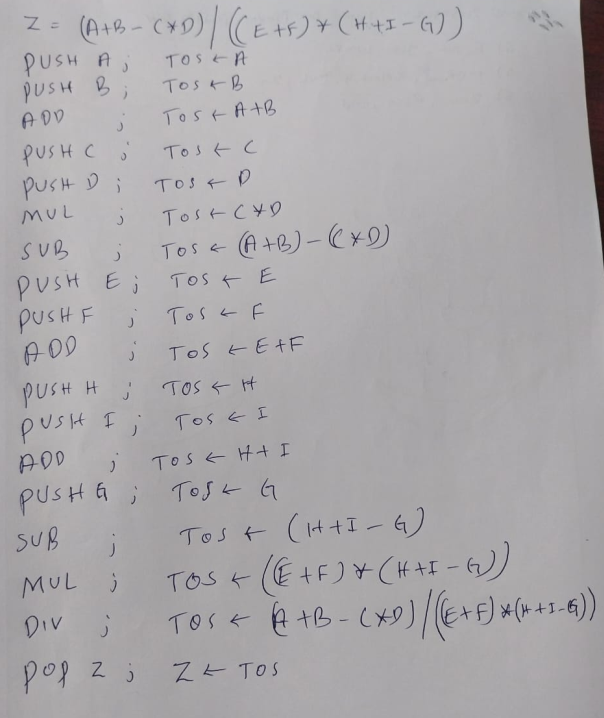 Z = (A+B - C*D) / ((E+F) * (H+I-G))
PUSH A ; TOS ← A
PUSH B ; TOS ← B
ADD ; TOS ← A+B
PUSH C ; TOS ← C
PUSH D ; TOS ← D
MUL ; TOS ← C*D
SUB ; TOS ← (A+B) - (C*D)
PUSH E ; TOS ← E
PUSH F ; TOS ← F
ADD ; TOS ← E+F
PUSH H ; TOS ← H
PUSH I ; TOS ← I
ADD ; TOS ← H+I
PUSH G ; TOS ← G
SUB ; TOS ← (H+I-G)
MUL ; TOS ← ((E+F) * (H+I-G))
DIV ; TOS ← (A+B - C*D) / ((E+F) * (H+I-G))
POP Z ; Z ← TOS